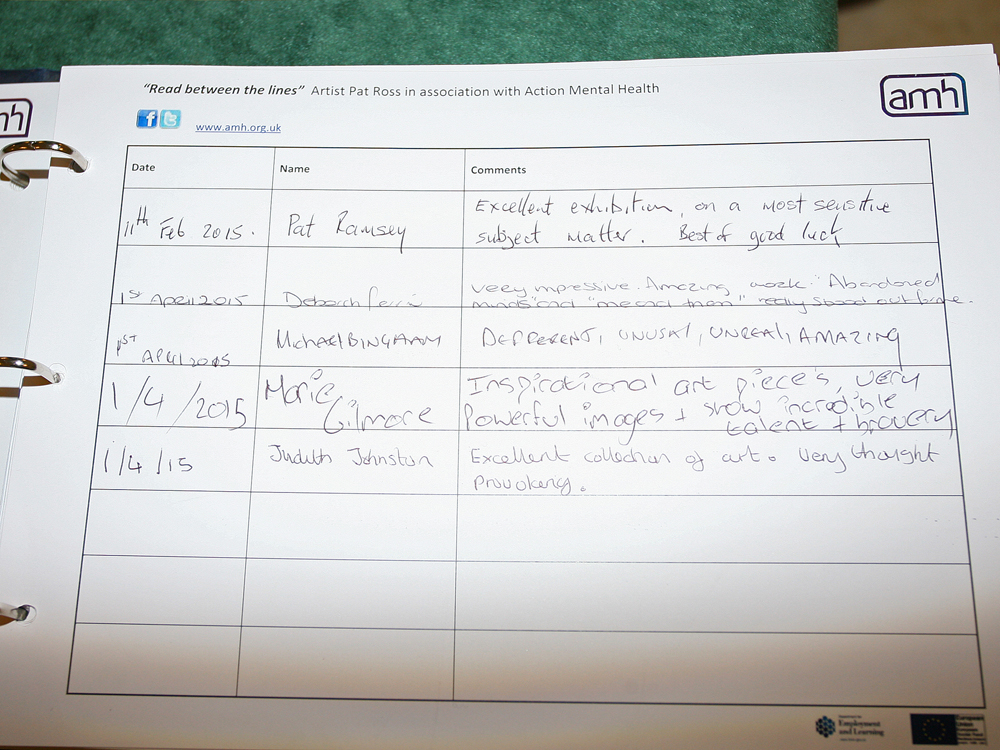 "Read between the lines" Artist Pat Ross in association with Action Mental Health
amh
www.amh.org.uk
Date Name Comments
11th Feb 2015. Pat Ramsey Excellent exhibition, on a most sensitive
subject matter. Best of good luck
1st April 2015 Deborah very impressive. Amazing work. "Abandoned
minds" and "me and them" really stood out for me.
1ST APRIL 2015 Michael BINGHAM DEFFERENT, UNUSAL, UNREAL, AMAZING
1/4/2015 Marie Gilmore Inspirational art piece's, very
Powerful images + show incredible
talent + bravery
1/4/15 Judith Johnston Excellent collection of art. Very thought
Provoking.
Employment
and Learning
European
Union